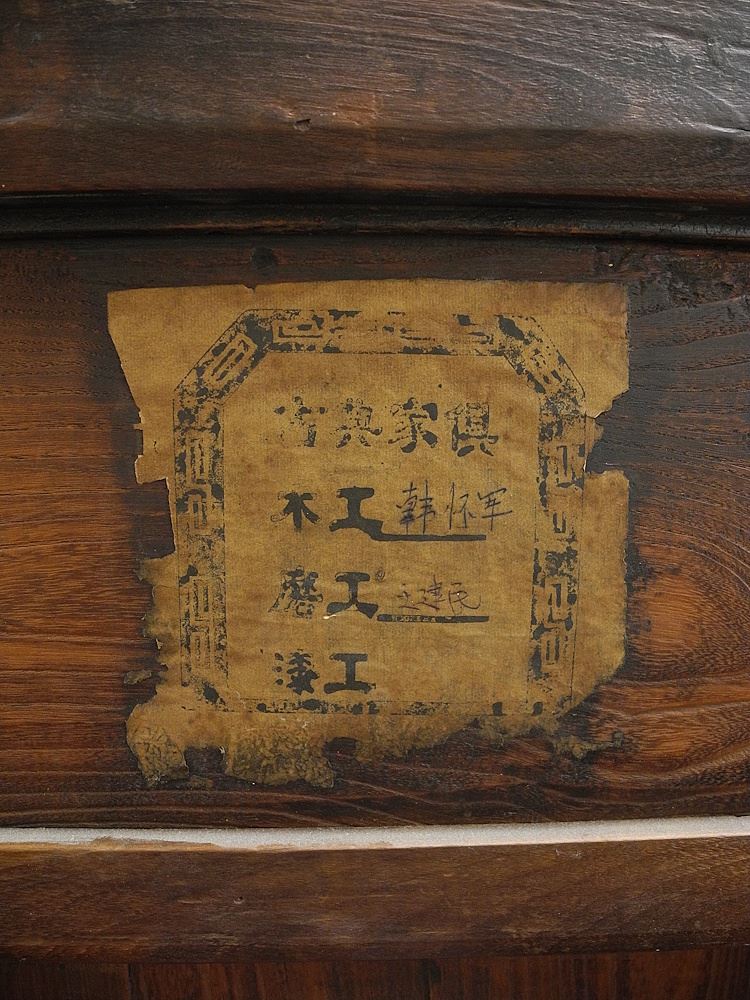 古典家俱
木工 韩怀军
磨工 王建民
漆工